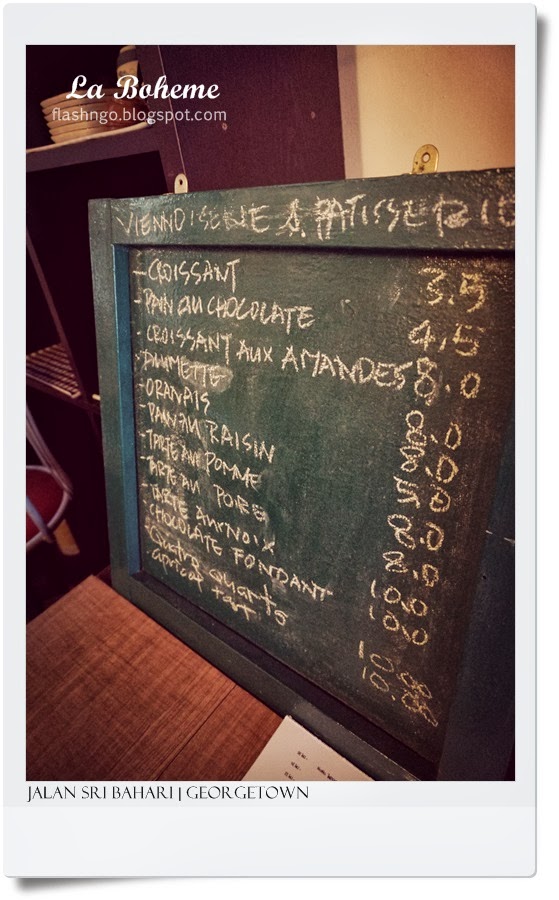 La Boheme
flashngo.blogspot.com
VIENNOISERIE & PATISSERIE
- CROISSANT 3.5
- PAIN AU CHOCOLATE 4.5
- CROISSANT AUX AMANDES 8.0
- PLUMETTE
- ORANAIS
- PAIN AU RAISIN
- TARTE AUX POMME
- TARTE AU POIRE
- TARTE AUX NOIX
- CHOCOLATE FONDANT
- Quatro Quarto
- apricot tart
JALAN SRI BAHARI | GEORGETOWN